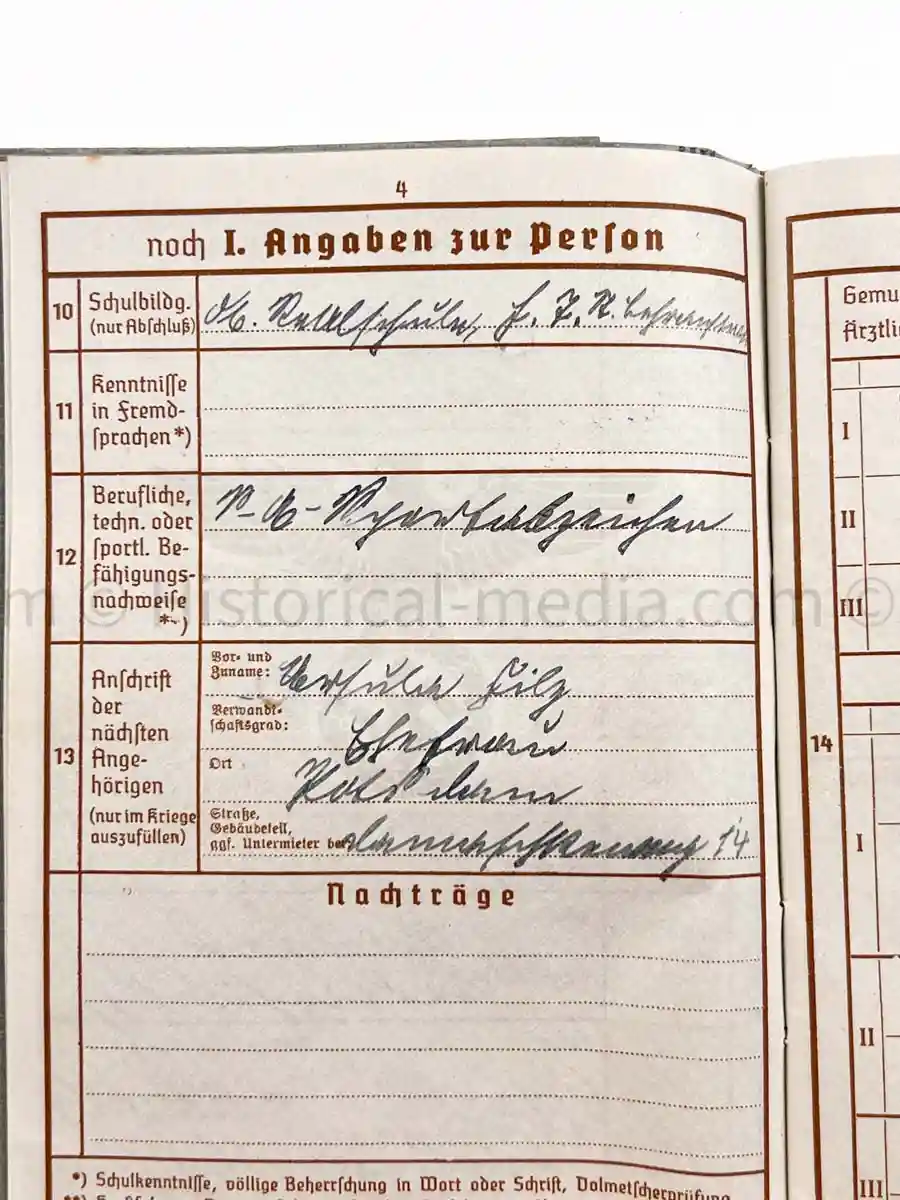 4
noch I. Angaben zur Person
10 Schulbildg. (nur Abschluß)
Ob. Realschule,
11 Kenntnisse in Fremd-sprachen *)
12 Berufliche, techn. oder sportl. Be-fähigungs-nachweise **)
S-A-Sportabzeichen
13 Anschrift der nächsten Ange-hörigen (nur im Kriege auszufüllen)
Vor- und Zuname: Ursula Filz
Verwandt-schaftsgrad: Ehefrau
Ort Potsdam
Straße, Gebäudeteil, ggf. Untermieter bei 14
Nachträge
*) Schulkenntnisse, völlige Beherrschung in Wort oder Schrift, Dolmetscherprüfung
Gemu
Ärztli
I
II
III
14
I
II
III
historical-media.com ©